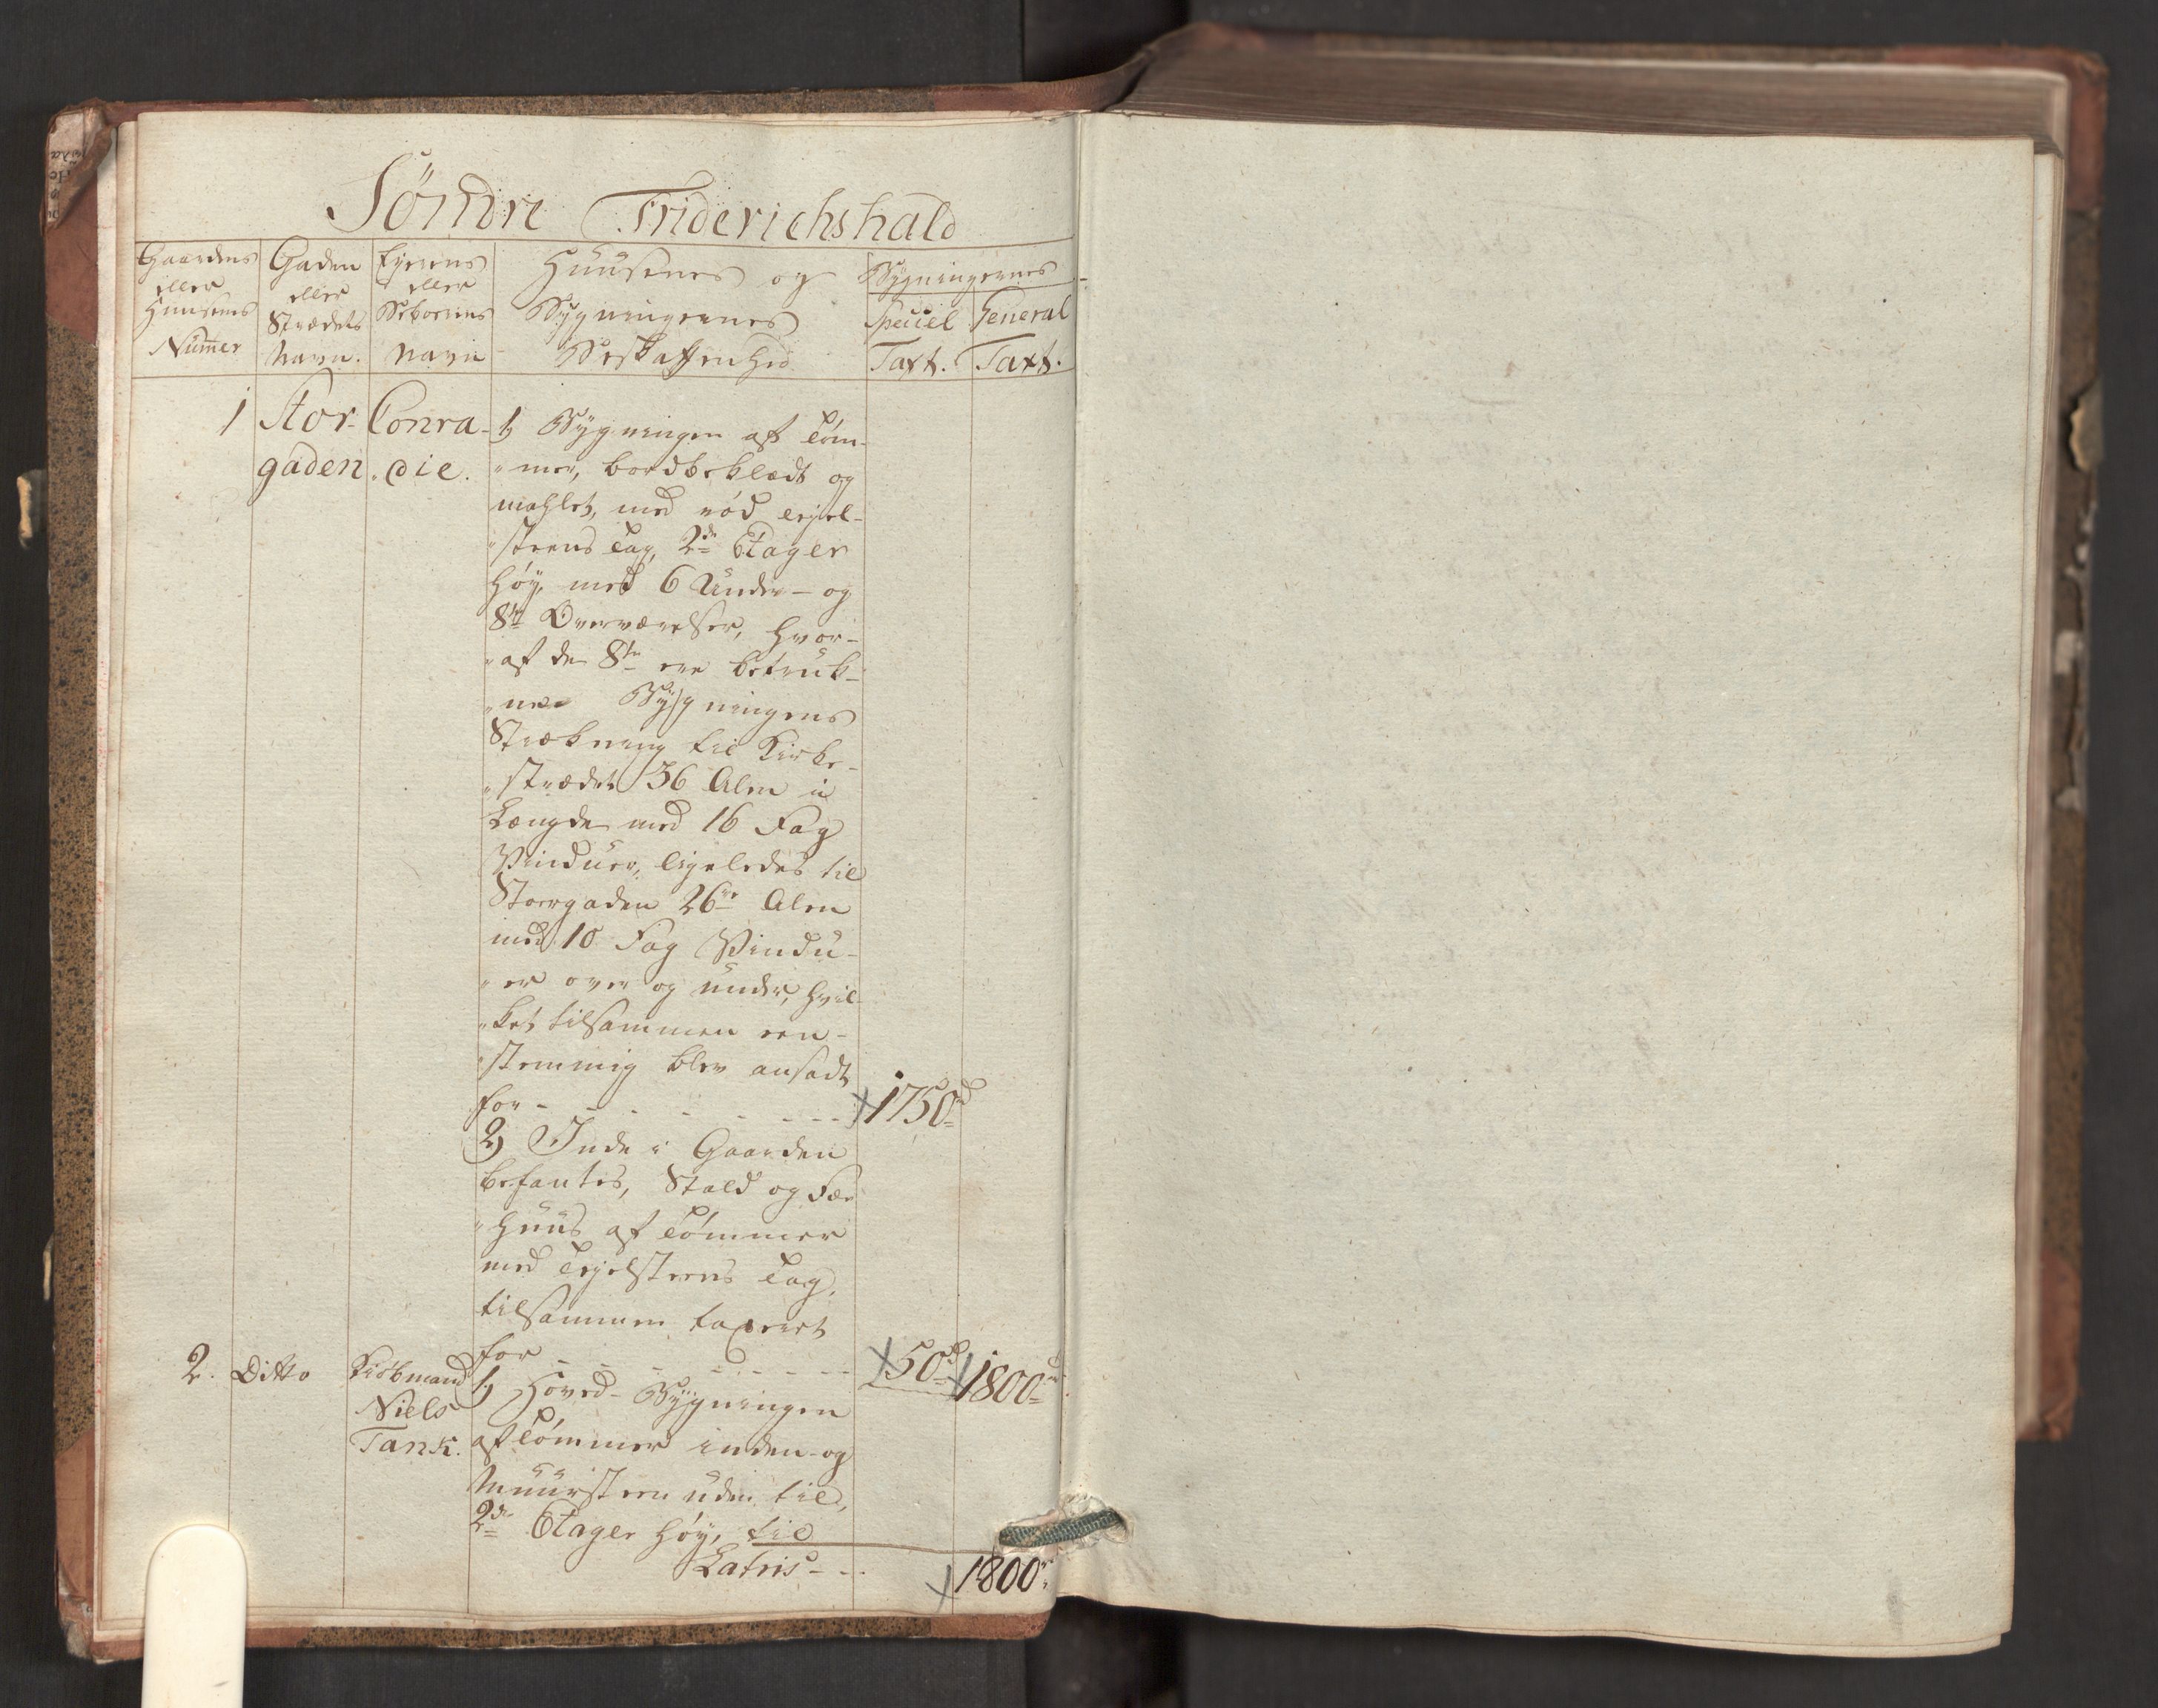 Søndre Friderichshald
Gaardens
eller
Huusenes
Numer
Gaden
eller
Strædets
Navn.
Ejerens
eller
Beboerens
Navn
Huusenes og
Bygningernes
Beskaffenhed
Bygningernes
Speciel General
Taxt. Taxt.
1 Stor- Conra- 1) Bygningen af Töm-
gaden die. mer, bordbeklædt og
mahlet, med röd tejel-
steens Tag, 2de Etager
höy, med 6 Under- og
8te Overværelser, hvor-
af de 8te ere betruk-
ne Bygningens
Strækning til Kirke-
strædet 36 Alen i
Længde med 16 Fag
Vinduer, ligeledes til
Storgaden 26ve Alen
med 10 Fag Vindu-
er over og under, hvil-
ket tilsammen een-
stemmig blev ansadt
for - - - - - - 1750rd
2) Inde i Gaarden
befantes, Stald og Fæe
huus af Tömmer
med Tejelsteens Tag,
tilsammen taxeret
for - - - - - - 50rd 1800rd
2. Ditto Kiöbmand 1) Hoved-Bygningen
Niels af Tömmer inden- og
Tank. Muursteen uden til,
2de Etager höy, til
Latris - - 1800rd